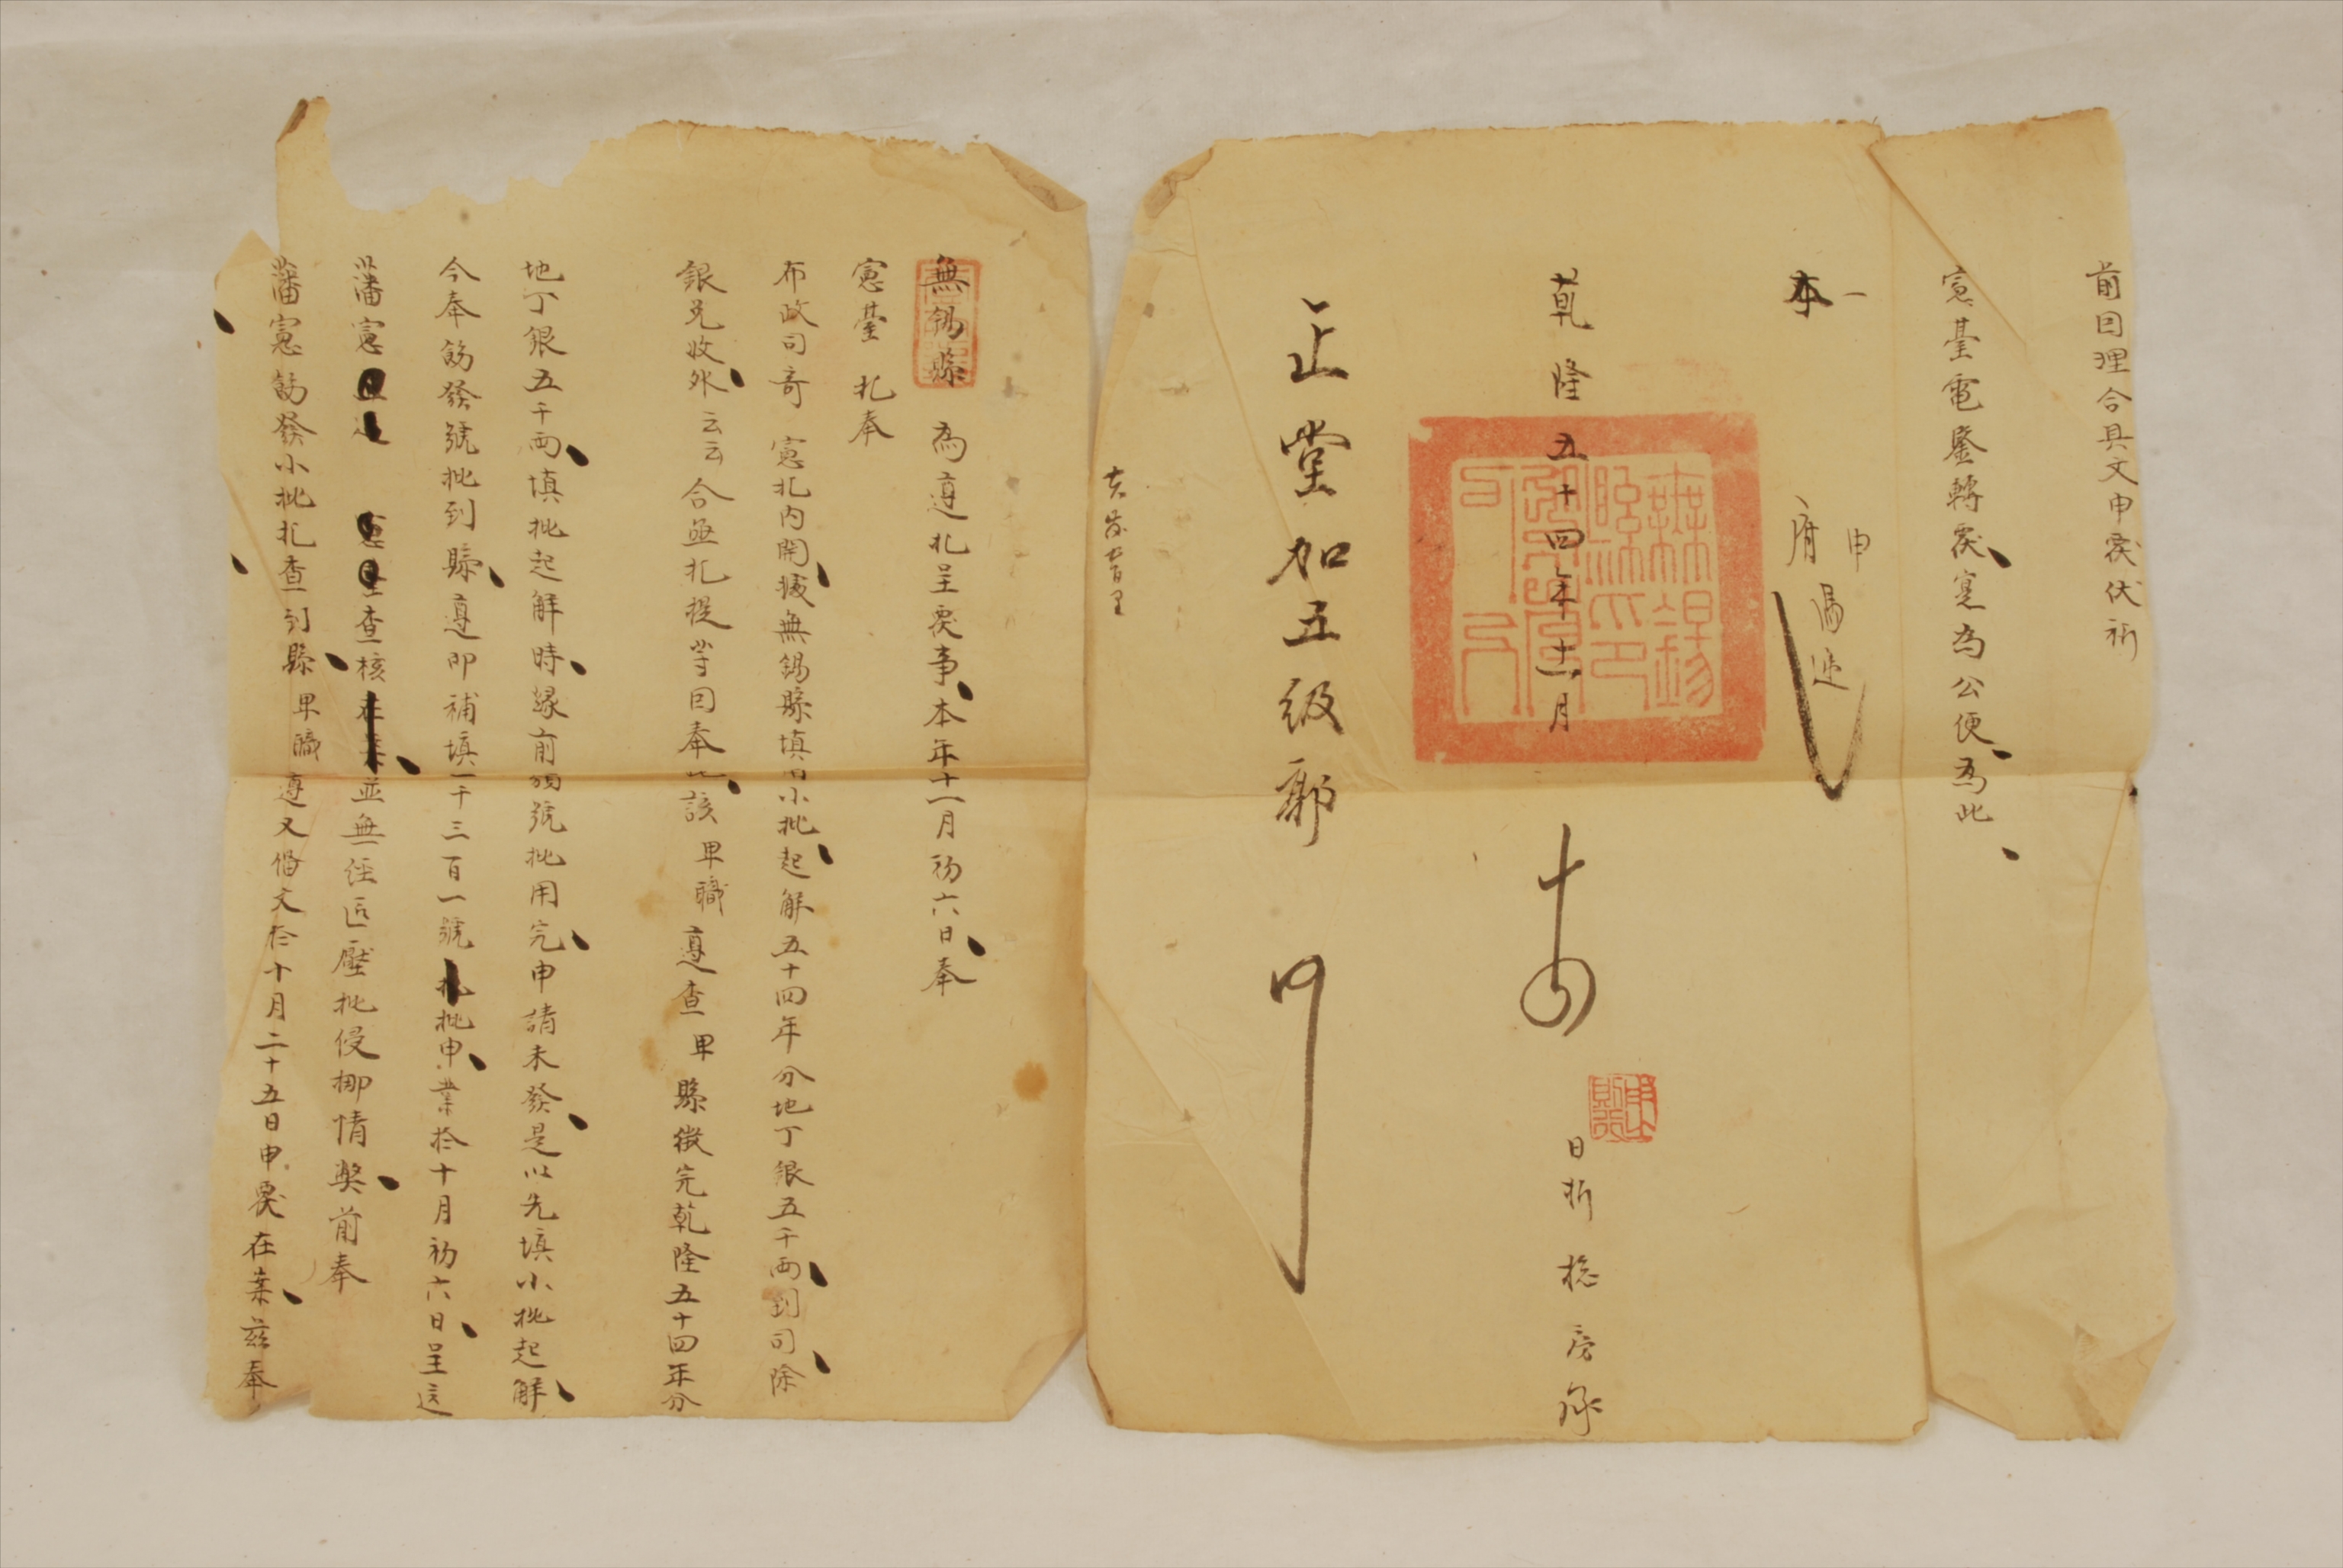 無錫縣 為遵札呈覆事本年十一月初六日奉
憲臺 札奉
布政司奇 憲札內開據無錫縣填用小批起解五十四年分地丁銀五千兩到司除
銀兌收外云云合亟札提等因奉此該卑職遵查卑縣徵完乾隆五十四年分
地丁銀五千兩填批起解時緣前頒號批用完申請未發是以先填小批起解
今奉飭發號批到縣遵即補填一千三百一號批申業於十月初六日呈送
藩憲 查核並無任匠壓批侵挪情弊前奉
藩憲飭發小批札查到縣卑職遵又俻文於十月二十五日申覆在案茲奉
前因理合具文申覆伏祈
憲臺電鑒轉覆寔為公便為此
一 申
本 府
乾隆五十四年十一月 日 房承
正堂加五級鄒 行